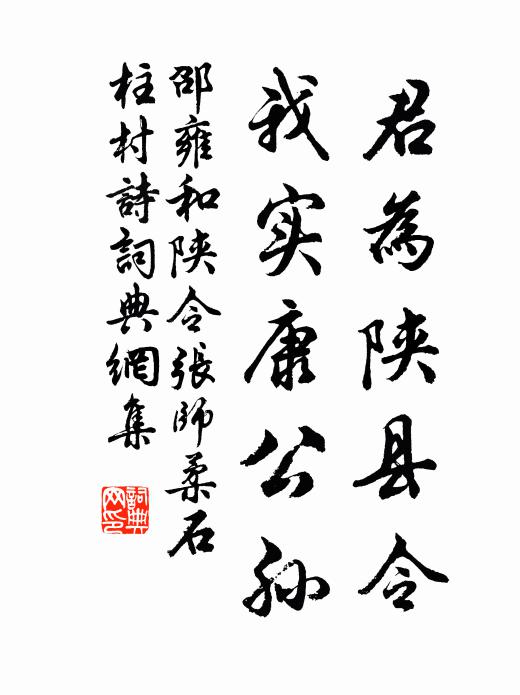 君為陕县令
我实康公孙
邵雍和陕令張師柔石
柱村詩詞典網集
詞典网印